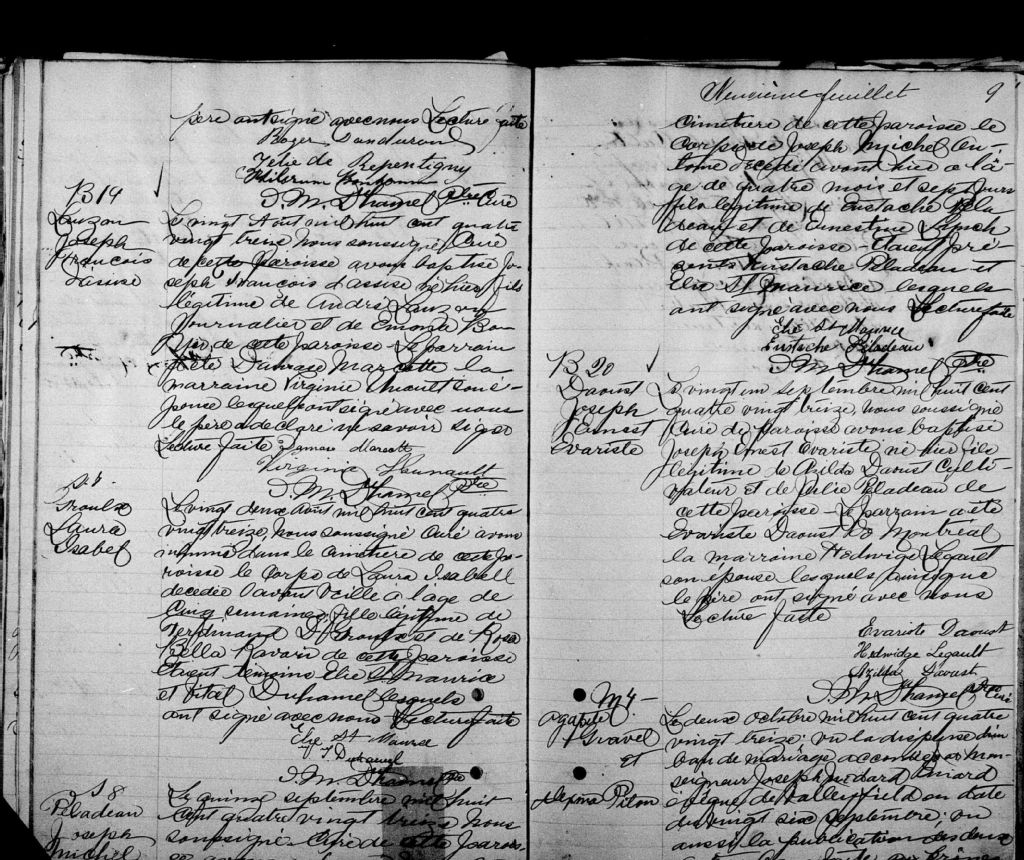 père ont signé avec nous Lecture faite
Roger Dandurand
Zelie de Repentigny
J. M. Dhamel Ptre Curé
B 19
Lauzon
Joseph
François
d'Assise
Le vingt Aout mil huit cent quatre
vingt treize nous soussigné Curé
de cette Paroisse avons baptisé Jo-
seph François d'assise né hier, fils
légitime de André Lauzon
Journalier et de Emma
de cette paroisse - Le parrain
a été Damase Marcotte la
marraine Virginie son é-
pouse lesquels ont signé avec nous
le père a déclaré ne savoir signer
Lecture faite Damase Marcotte
Virginie
J. M. Dhamel Ptre
S 7
Proulx
Laura
Isabel
Le vingt deux Aout mil huit cent quatre
vingt treize, nous soussigné Curé avons
inhumé dans le cimetière de cette pa-
roisse le Corps de Laura Isabell
décédée l'avant veille a l'age de
Cinq semaines, fille légitime de
Ferdinand D. Proulx et de Rosa
Bella Ravari de cette paroisse
Etaient témoins Elie St Maurice
et Vital Duhamel lesquels
ont signé avec nous Lecture faite
Elie St Maurice
V Duhamel
J. M. Dhamel Ptre
S 8
Peladeau
Joseph
Michel
Le quinze septembre mil huit
cent quatre vingt treize nous
soussigné Curé de cette Parois-
Neuvième feuillet 9
cimetière de cette paroisse le
corps de Joseph Michel En-
time décédé avant hier a l'â-
ge de quatre mois et sept Jours
fils légitime de Eustache Pela-
deau et de Ernestine
de cette paroisse - Etaient pré-
sents Eustache Peladeau et
Elie St Maurice lesquels
ont signé avec nous Lecture faite
Elie St Maurice
Eustache Peladeau
J. M. Dhamel Ptre
B 20
Daoust
Joseph
Ernest
Evariste
Le vingt un septembre mil huit cent
quatre vingt treize, nous soussigné
Curé de Paroisse avons baptisé
Joseph Ernest Evariste né hier fils
légitime de Azilda Daoust Culti-
vateur et de Julie Peladeau de
cette paroisse - Le parrain a été
Evariste Daoust de Montréal
la marraine Hedwidge Legault
son épouse lesquels ainsi que
le père ont signé avec nous
Lecture faite
Evariste Daoust
Hedwidge Legault
Azilda Daoust
J. M. Dhamel Ptre Curé
M 4 -
Agapite
Gravel
et
Alexina Pilon
Le deux octobre mil huit cent quatre
vingt treize: vu la dispense d'un
ban de mariage accordée par Mon-
seigneur Joseph Médard Emard
évêque de Valleyfield en date
du vingt six septembre: vu
aussi la publication des deux